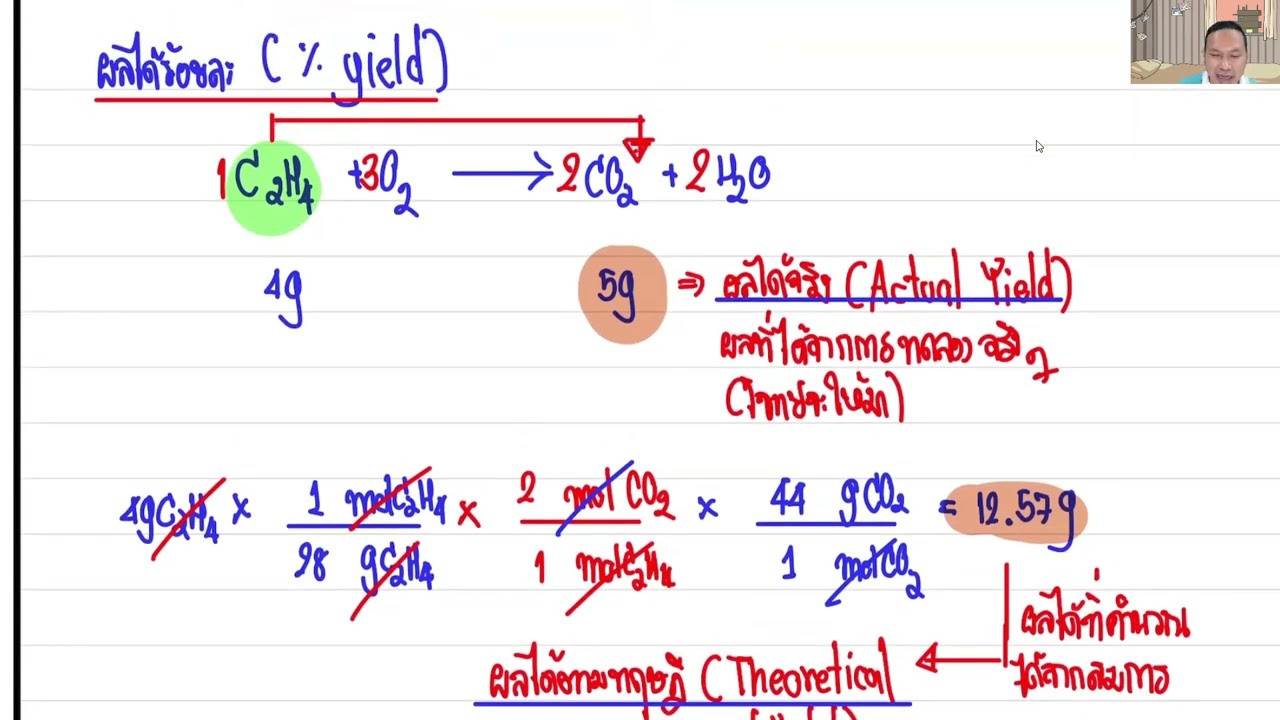 ผลได้ร้อยละ (% yield)
1C₂H₄ +3O₂ ⟶ 2CO₂ + 2H₂O
4g 5g ⇒ ผลได้จริง (Actual Yield)
ผลที่ได้จากการทดลองจริงๆ
(โจทย์จะให้มา)
4gC₂H₄ × 1 molC₂H₄ × 2 mol CO₂ × 44 gCO₂ = 12.57g
28 gC₂H₄ 1 molC₂H₄ 1 molCO₂
ผลได้ที่คำนวณ
ได้จากสมการ
ผลได้ตามทฤษฎี (Theoretical